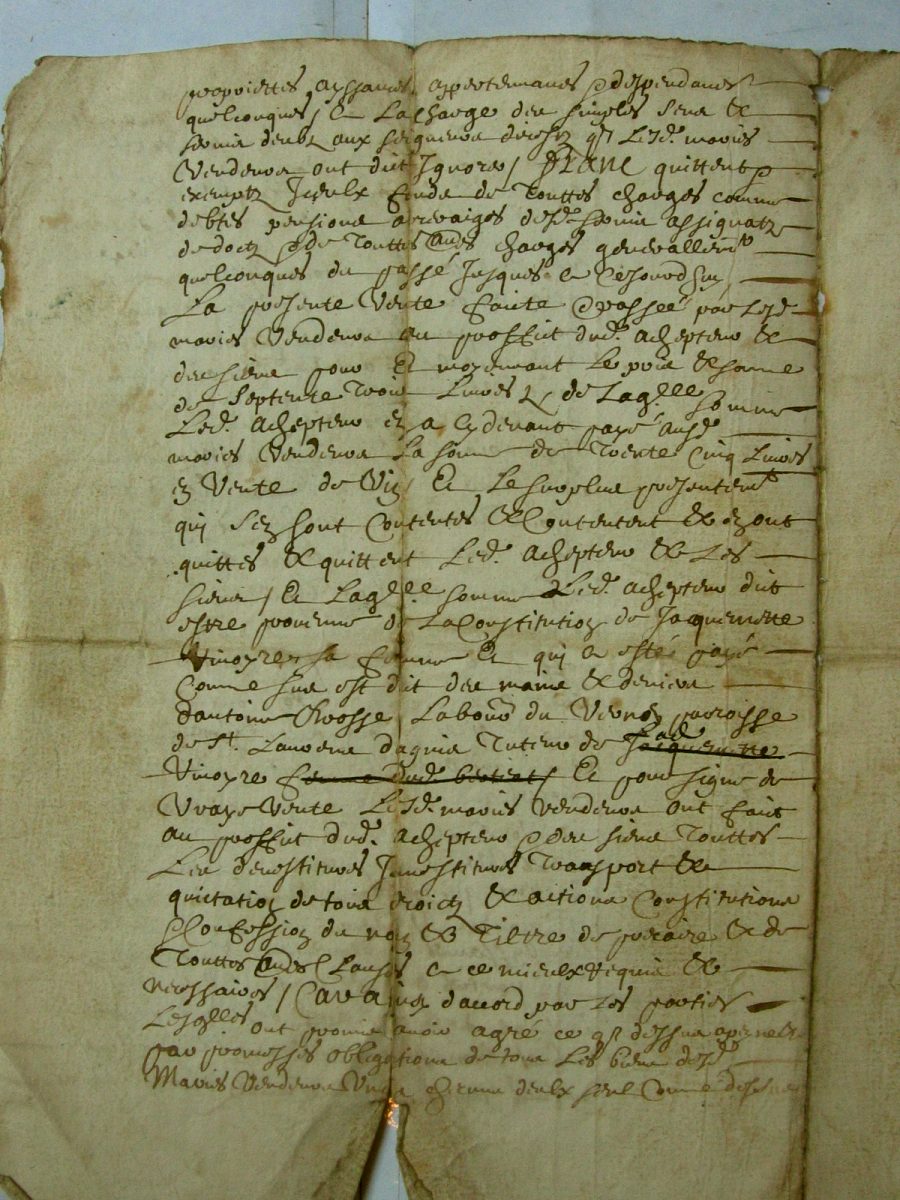 proprietes ayssances appertenances & deppendances
quelconques / a La charge des simples sens &
servis deubz aux seigneurs directz q Lesd. mariés
Vendeurs ont dict Ignorer / franc quittent &
exemptz Iceulx fondz de Touttes charges comme
debtes pensions arreraiges desd. servis assignatz
de doctz & de Touttes aues charges generallemt
quelconques du passé Jusques a ce Jourdhuy
La presente Vente faite & passée par Lesd.
mariés Vendeurs au proffict dud. achepteur &
des siens pour Et moyennant Le prix & somme
de Septente Trois Livres tz de Laqlle somme
Led. achepteur en a cy devant payé ausd.
mariés Vendeurs La somme de Trente cinq Livres
Et Le surplus presentemt
qui sen sont Contentés & Contentent & en ont
quittés & quittent Led. achepteur & Les
siens / Et Laqlle somme Led. achepteur dict
estre provenue de La Constitution de Jaquemette
Vinoyre sa femme Et qui a esté payé
Comme sus est dict des mains & deniers
dantoine Chosse Labour du Verney parroisse
de St. Laurens dagnis Tuteur de lad. Jaquemette
Vinoyre femme dud. Et pour signe de
Vraye Vente Lesd. mariés vendeurs ont faict
au proffict dud. achepteur & des siens Touttes
Les devestitures Jnvestitures Transport &
quictation de tous droictz & actions Constitutions
& Confession du nom & Tiltre de precaire & de
Touttes aues Clauses a ce mieulx requis &
necessaires / Car ainsy daccord par Les parties
Lesqlles ont promis avoir agré ce q dessus
par promesses obligations de tous Les biens desd.
Mariés Vendeurs Ung chacung deulx seul Comme